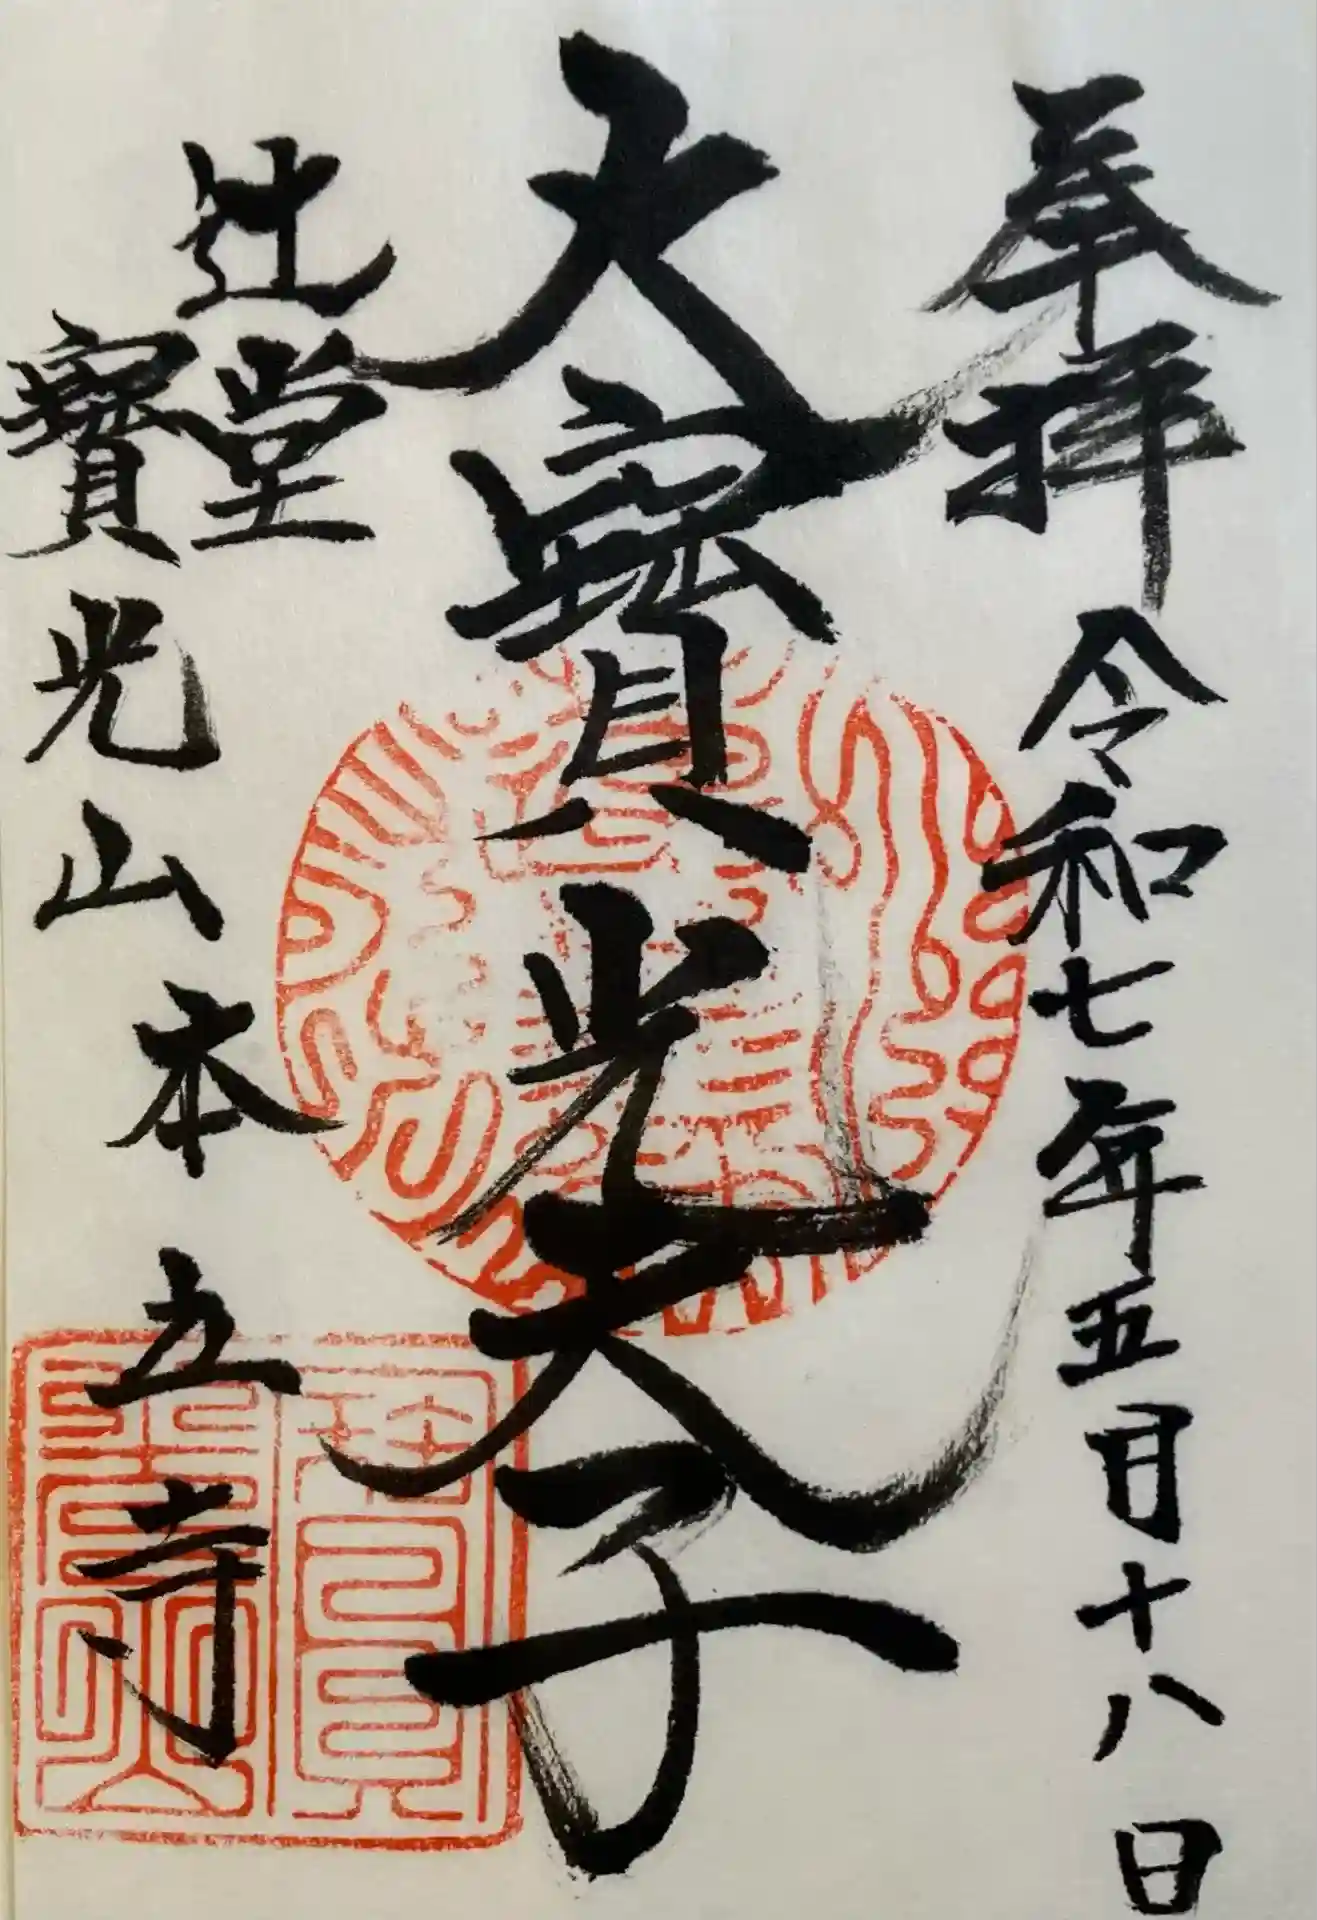 奉拝 令和七年五月十八日
大寳光天子
辻堂
寳光山本立寺